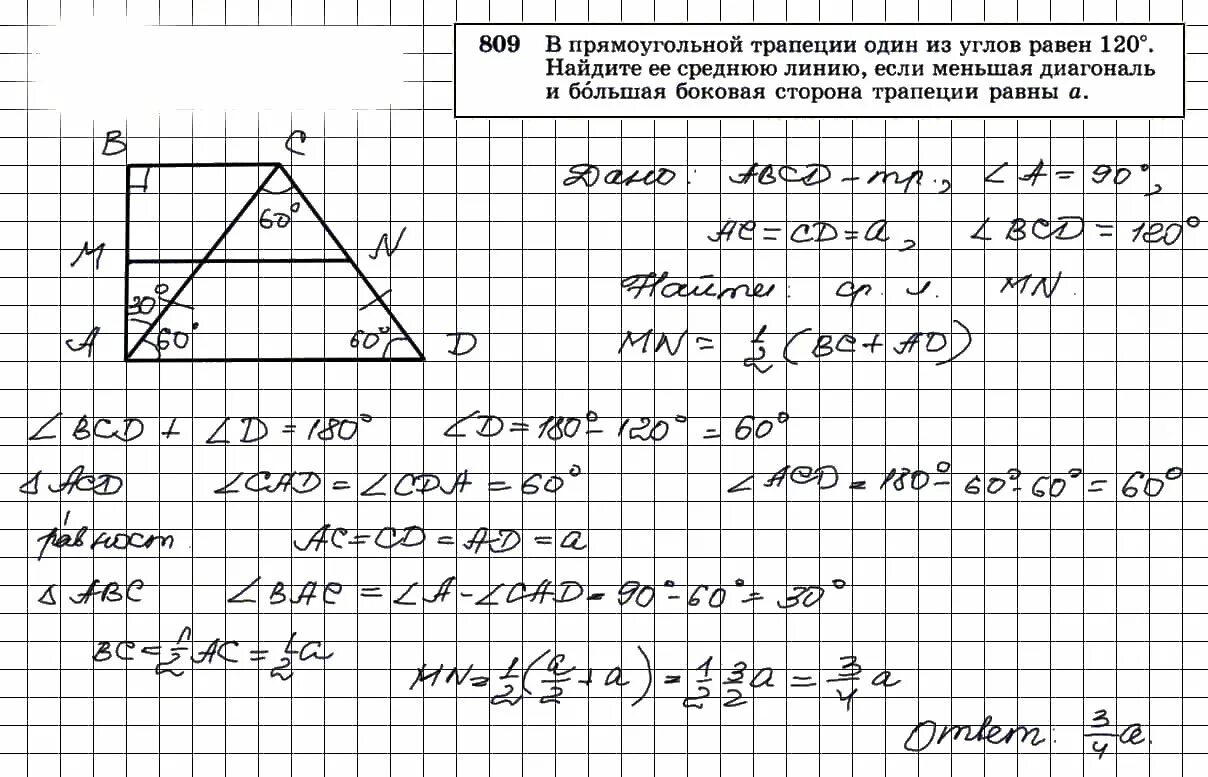 809 В прямоугольной трапеции один из углов равен 120°.
Найдите ее среднюю линию, если меньшая диагональ
и бо́льшая боковая сторона трапеции равны a.
B C
60°
M N
30°
A 60° 60° D
Дано: ABCD – тр., ∠A = 90°,
AC = CD = a, ∠BCD = 120°
Найти: ср. л. MN.
MN = 1/2 (BC + AD)
∠BCD + ∠D = 180° ∠D = 180° – 120° = 60°
△ACD ∠CAD = ∠CDA = 60° ∠ACD = 180° – 60° – 60° = 60°
равност. AC = CD = AD = a
△ABC ∠BAC = ∠A – ∠CAD = 90° – 60° = 30°
BC = 1/2 AC = 1/2 a
MN = 1/2 (a/2 + a) = 1/2 3/2 a = 3/4 a
Ответ: 3/4 a.